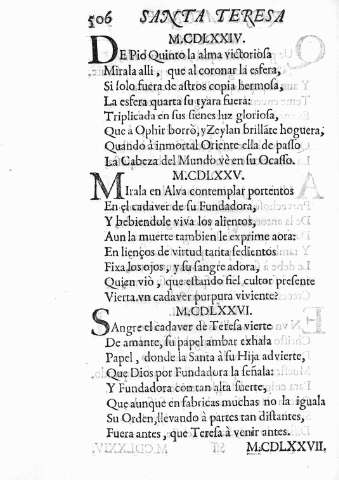 506 SANTA TERESA
M.CDLXXIV.
DE Pio Quinto la alma victoriosa
Mirala alli, que al coronar la esfera,
Si solo fuera de astros copia hermosa,
La esfera quarta su tyara fuera:
Triplicada en sus sienes luz gloriosa,
Que a Ophir borrò, y Zeylan brillãte hoguera,
Quando à inmortal Oriente ella de passo
La Cabeza del Mundo vè en su Ocasso.
M.CDLXXV.
MIrala en Alva contemplar portentos
En el cadaver de su Fundadora,
Y bebiendole viva los alientos,
Aun la muerte tambien le exprime aora:
En lienços de virtud tanta sedientos
Fixa los ojos, y su sangre adora,
Quien viò, que estando fiel cultor presente
Vierta vn cadaver purpura viviente?
M.CDLXXVI.
SAngre el cadaver de Teresa vierte
De amante, su papel ambar exhala
Papel, donde la Santa à su Hija advierte,
Que Dios por Fundadora la señala:
Y Fundadora con tan alta suerte,
Que aunque en fabricas muchas no la iguala
Su Orden, llevando à partes tan distantes,
Fuera antes, que Teresa à venir antes.
M.CDLXXVII.